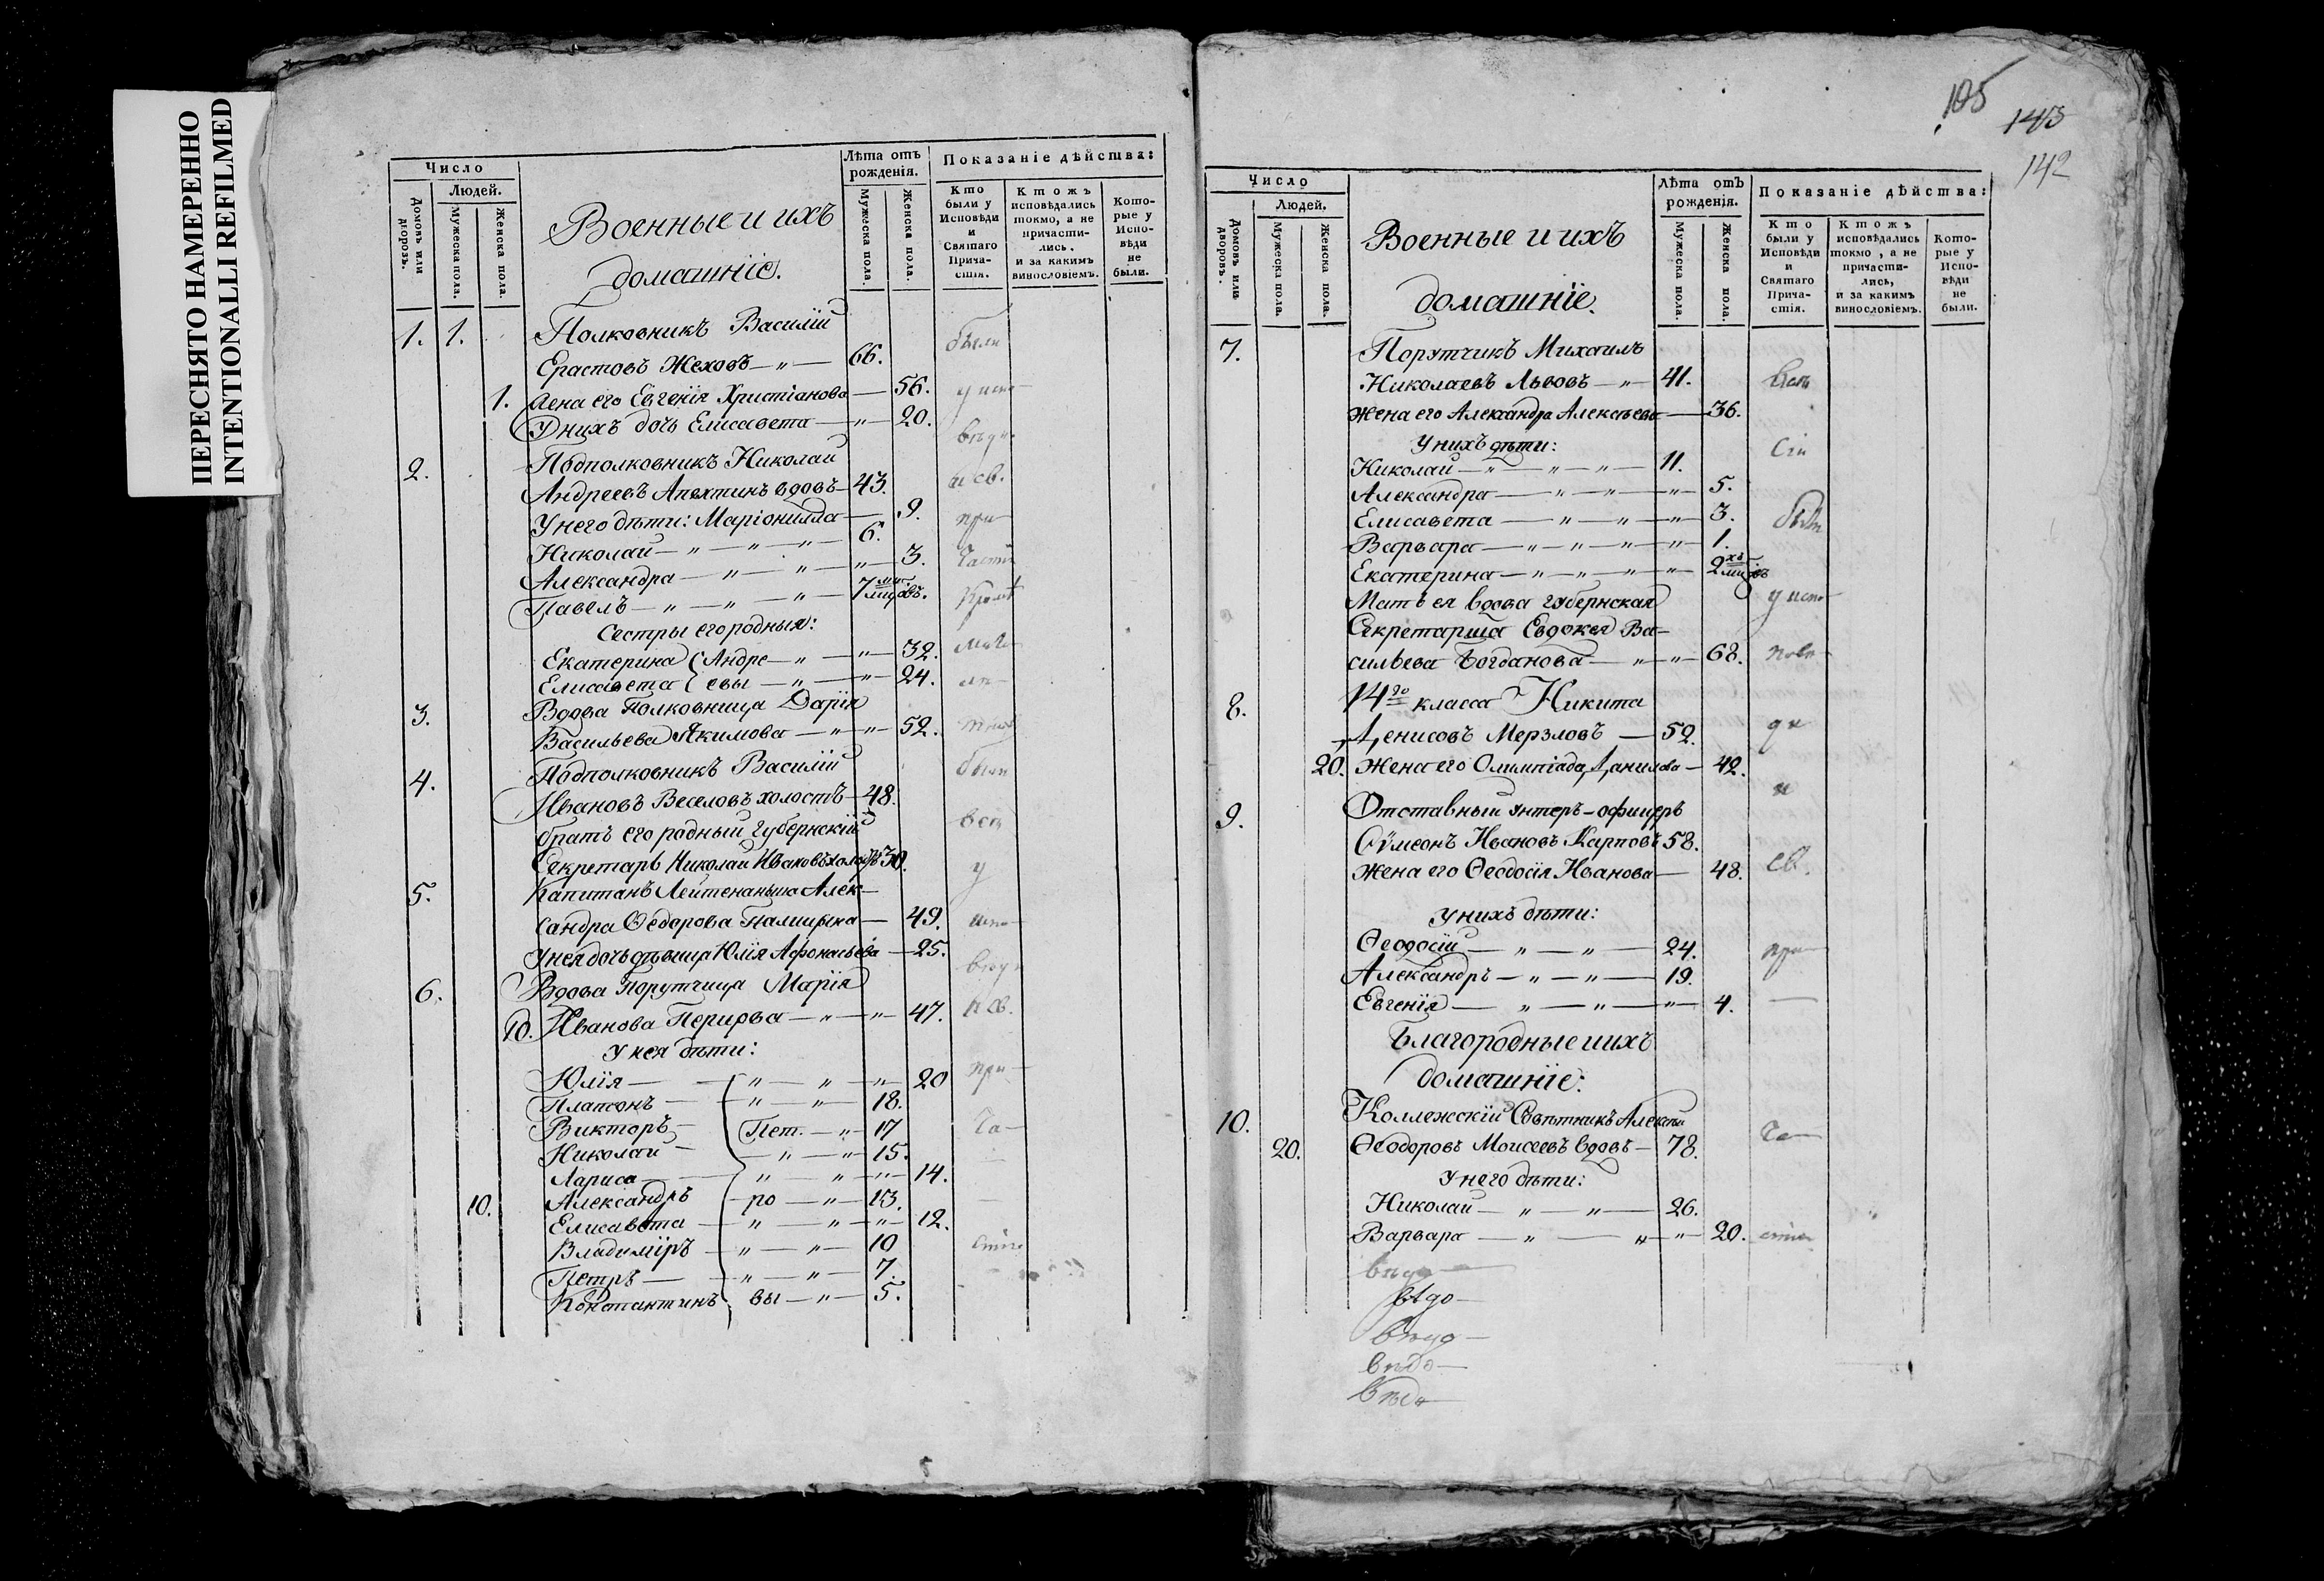 ПЕРЕСНЯТО НАМЕРЕННО
INTENTIONALLI REFILMED
Число
Людей.
Домовъ или дворовъ.
Мужеска пола.
Женска пола.
Военные и ихъ
домашніе.
Лѣта отъ рожденія.
Мужеска пола.
Женска пола.
Показаніе дѣйства:
Кто были у Исповѣди и Святаго Прича-стія.
Ктожъ исповѣдались токмо, а не причасти-лись, и за какимъ винословіемъ.
Кото-рые у Испо-вѣди не были.
1. 1. Полковникъ Василій
Ерастовъ Жеховъ — „ — 66.
1. Жена его Евгенія Христіанова — 56.
У нихъ дочь Елисавета — „ — 20.
2. Подполковникъ Николай
Андреевъ Апехтинъ вдовъ — 43.
У него дѣти: Маріонилла — 9.
Николай — „ — „ — „ — 6.
Александра — „ — „ — „ — 3.
Павелъ — „ — „ — „ — 7 ми мцовъ.
Сестры его родныя:
Екатерина { Андре — „ — „ — 32.
Елисавета { евы — „ — „ — 24.
3. Вдова Полковница Дарія
Васильева Якимова — „ — „ — 52.
4. Подполковникъ Василій
Ивановъ Веселовъ холостъ — 48.
братъ его родный Губернскій
Секретарь Николай Ивановъ холостъ 30.
5. Капитанъ Лейтенаньша Алек-
сандра Ѳедорова — 49.
У нея дочь дѣвица Юлія Афонасьева — 25.
6. Вдова Порутчица Марія
10. Иванова — „ — „ — 47.
У нея дѣти:
Юлія — „ — „ — „ — 20
Платонъ — „ — „ — 18.
Викторъ — Пет. — „ — 17
Николай — „ — „ — 15.
Лариса — „ — „ — „ — 14.
10. Александръ — ро — „ — 13.
Елисавета — „ — „ — „ — 12.
Владиміръ — „ — „ — 10
Петръ — „ — „ — 7.
Константинъ вы — „ — 5.
были
у испо
вѣди
и св.
при
части
были
всѣ
у
испо
вѣди
и св.
при
ча
стія
105
143
142
Число
Людей.
Домовъ или дворовъ.
Мужеска пола.
Женска пола.
Военные и ихъ
домашніе.
Лѣта отъ рожденія.
Мужеска пола.
Женска пола.
Показаніе дѣйства:
Кто были у Исповѣди и Святаго Прича-стія.
Ктожъ исповѣдались токмо, а не причасти-лись, и за какимъ винословіемъ.
Кото-рые у Испо-вѣди не были.
7. Порутчикъ Михаилъ
Николаевъ Львовъ — „ — 41.
Жена его Александра Алексѣева — 36.
У нихъ дѣти:
Николай — „ — „ — „ — 11.
Александра — „ — „ — „ — 5.
Елисавета — „ — „ — „ — 3.
Варвара — „ — „ — „ — „ — 1.
Екатерина — „ — „ — „ — „ — 2 хъ мцовъ
Мать ея вдова Губернская
Секретарша Евдокея Ва-
сильева Богданова — „ — „ — 68.
8. 14го класса Никита
Денисовъ Мерзловъ — 52.
20. Жена его Олимпіада Данилова — 42.
9. Отставный унтеръ-офицеръ
Сѵмеонъ Ивановъ Карповъ 58.
Жена его Ѳеодосія Иванова — 48.
У нихъ дѣти:
Ѳеодосій — „ — „ — 24.
Александръ — „ — „ — 19.
Евгенія — „ — „ — „ — 4.
Благородные и ихъ
домашніе:
10. Коллежскій Совѣтникъ Алексѣй
20. Ѳеодоровъ Моисеевъ вдовъ — 78.
У него дѣти:
Николай — „ — „ — 26.
Варвара — „ — „ — „ — 20.
Всѣ
сіи
были
у испо
св.
при
ча
стія